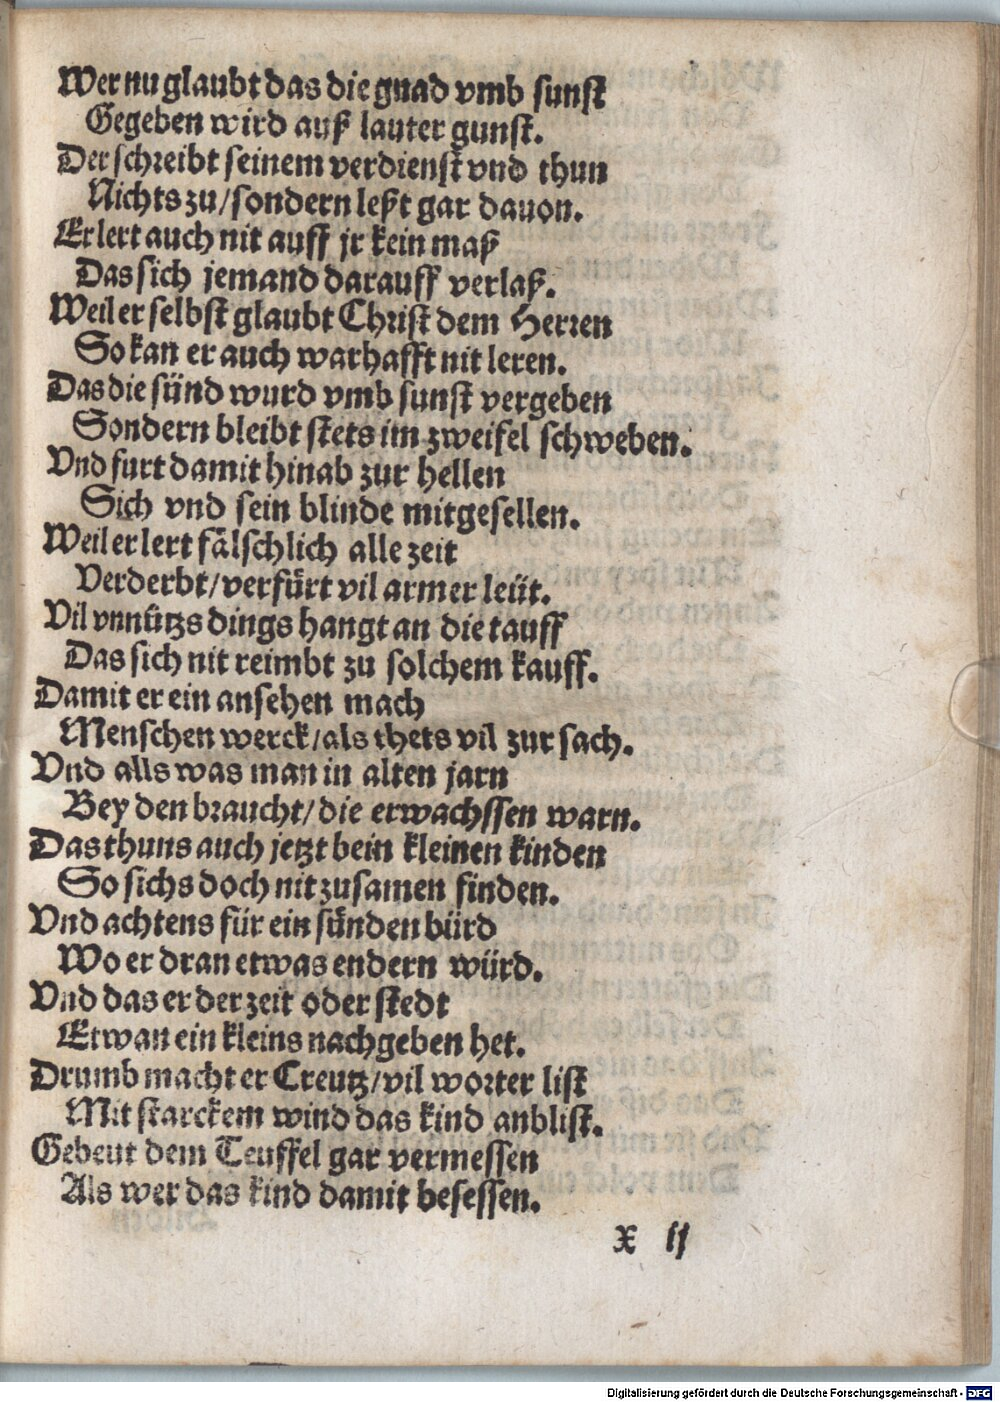 Wer nu glaubt das die gnad vmb sunst
Gegeben wird auß lauter gunst.
Der schreibt seinem verdienst vnd thun
Nichts zu/sondern leßt gar dauon.
Er lert auch nit auff jr kein maß
Das sich jemand darauff verlaß.
Weil er selbst glaubt Christ dem Herren
So kan er auch warhafft nit leren.
Das die sünd wurd vmb sunst vergeben
Sondern bleibt stets im zweifel schweben.
Vnd furt damit hinab zur hellen
Sich vnd sein blinde mitgesellen.
Weil er lert fälschlich alle zeit
Verderbt/verfürt vil armer leüt.
Vil vnnützs dings hangt an die tauff
Das sich nit reimbt zu solchem kauff.
Damit er ein ansehen mach
Menschen werck/als thets vil zur sach.
Vnd alls was man in alten jarn
Bey den braucht/die erwachssen warn.
Das thuns auch jetzt bein kleinen kinden
So sichs doch nit zusamen finden.
Vnd achtens für ein sünden bürd
Wo er dran etwas endern würd.
Vnd das er der zeit oder stedt
Etwan ein kleins nachgeben het.
Drumb macht er Creutz/vil worter list
Mit starckem wind das kind anblist.
Gebeut dem Teuffel gar vermessen
Als wer das kind damit besessen.
X ij
Digitalisierung gefördert durch die Deutsche Forschungsgemeinschaft - DFG